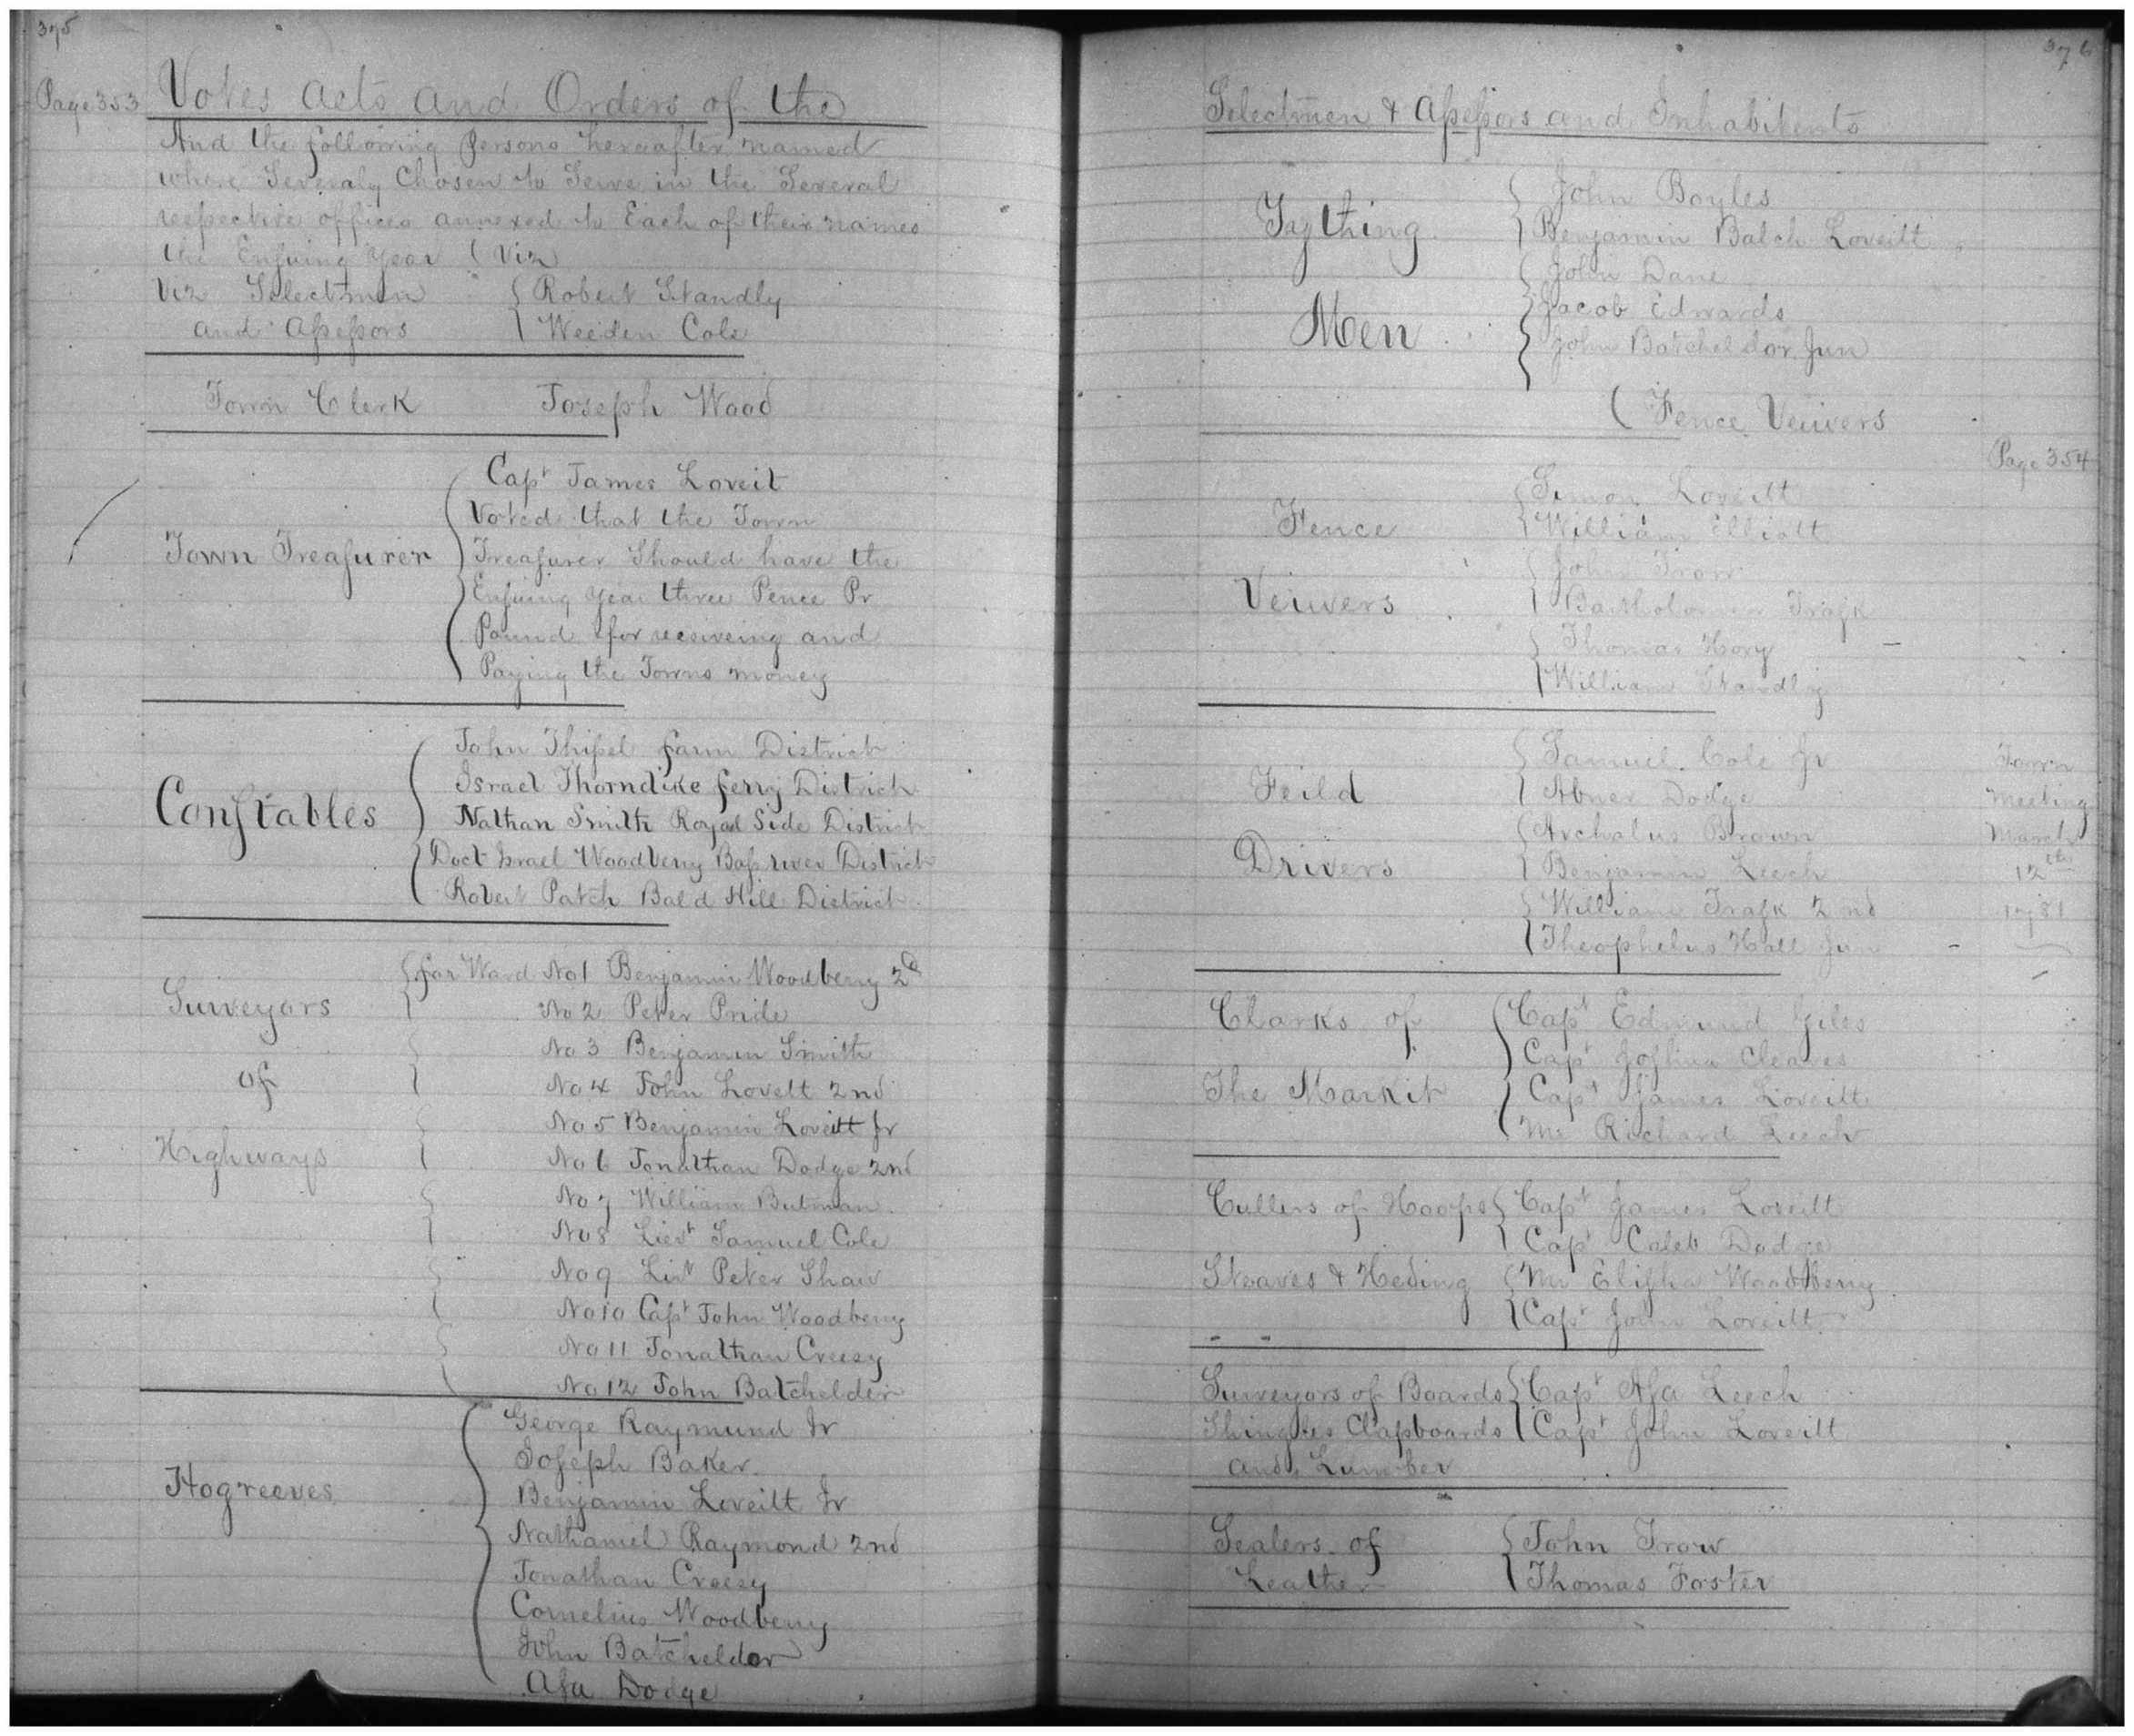 375
Page 353
Votes acts and Orders of the
And the following Persons hereafter named
where Severaly Chosen to Serve in the Several
respective offices annexed to Each of their names
the Ensuing Year (Viz
Viz Selectmen { Robert Standly
and Assessors Weeden Cole
Town Clerk Joseph Wood
Capt James Loveit
Voted that the Town
Town Treasurer Treasurer Should have the
Ensuing Year three Pence Pr
Pound for receiveing and
Paying the Towns money
John Thissel farm District
Israel Thorndike ferry District
Constables Nathan Smith Royal Side District
Doct Israel Woodbery Bass river District
Robert Patch Bald Hill District
for Ward No 1 Benjamin Woodbery 2d
Surveyors No 2 Peter Pride
No 3 Benjamin Smith
of No 4 John Lovett 2nd
No 5 Benjamin Loveitt Jr
Highways No 6 Jonathan Dodge 2nd
No 7 William Butman
No 8 Liet Samuel Cole
No 9 Liet Peter Shaw
No 10 Capt John Woodbery
No 11 Jonathan Creesy
No 12 John Batchelder
George Raymund Jr
Joseph Baker
Hogreeves Benjamin Loveitt Jr
Nathaniel Raymond 2nd
Jonathan Creesy
Cornelius Woodbery
John Batcheldor
Asa Dodge
376
Selectmen & Assessors and Inhabitents
John Boyles
Tything Benjamin Balch Loveitt
John Dane
Men Jacob Edwards
John Batcheldor Jun
( Fence Veiwers
Page 354
Simon Loveitt
Fence William Elliott
John Trow
Veiwers Bartholomew Trask
Thomas Hory
William Standly
Samuel Cole Jr
Feild Abner Dodge
Archalus Brown
Drivers Benjamin Leech
William Trask 2nd
Theophelus Hall Jun
Town
Meeting
March
12th
1781
Clarks of Capt Edmund Giles
Capt Joshua Cleaves
The Markit Capt James Loveitt
Mr Richard Leech
Cullers of Hoops Capt James Loveitt
Capt Caleb Dodge
Steaves & Heding Mr Elisha Woodbery
Capt John Loveitt
Surveyors of Boards Capt Asa Leech
Shingles Clapboards Capt John Loveitt
and Lumber
Sealers of John Trow
Leather Thomas Foster